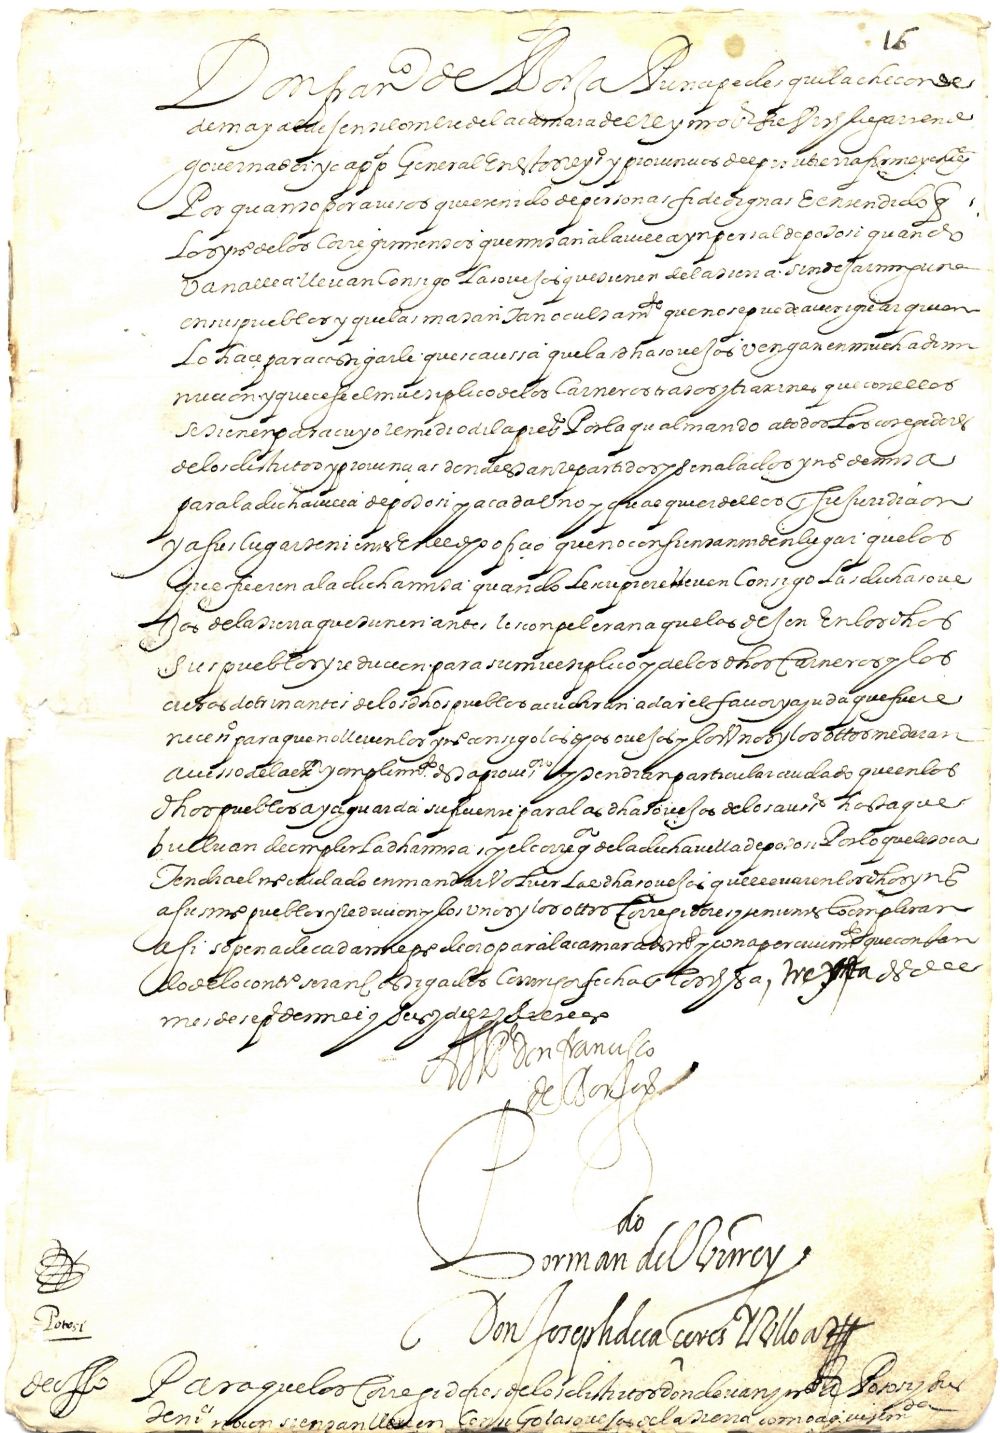 16
Don franco de Borja Principe de esquilache conde
de mayalde gentilombre de la camara del Rey nro sr su Virrey lugarteniente
governador y capp.n General En estos reynos y provincias del piru tierra firme y chile
Por quanto por avisos que e tenido de personas fidedignas E entendido q
Los yndios de los Corregimientos que mitan a la villa ynperial de potosi quando
Van a ella llevan Consigo Las ovejas que tienen de la tierra sin dejar ninguna
en sus pueblos y que las matan Tan ocultamte que no se puede averiguar quien
Lo hace para castigarle que es caussa que las dhas ovejas vengan en mucha dimi
nucion y que cese el multiplico de los Carneros trasos y traxines que con ellos
se tienen para cuyo remedio di la presente Por la qual mando a todos Los corregidores
de los districtos y provincias donde estan repartidos y señalados yndios de mita
para la dicha villa de potosi y a cada Uno y qualquier dellos En su Juridicion
y a sus lugartenientes En el dho oficio que no consientan ni den lugar que los
que fueren a la dicha mita quando Les cupiere lleven Consigo Las dichas ove
Jas de la tierra que tuvieren antes les conpeleran a que las dejen En los dhos
Sus pueblos y reducion para su multiplico y de los dhos Carneros y los
curas dotrinantes de los dhos pueblos acudiran a dar el favor y ayuda que fuere
neceso para que no lleven los yndios consigo las dhas ovejas y los Unos y los ottros me daran
avisso de la execucion y cumplimto desta provission y tendran particular cuidado que en los
dhos pueblos aya guarda suficiente para las dhas ovejas de los ausentes hasta que
buelvan de cumplir La dha mita y el corregor de la dicha villa de potosi Por lo que le toca
Tendra el mismo cuidado en mandar Volver Las dhas ovejas que llevaren los dhos yndios
a sus mismos pueblos y reducion y los Unos y los ottros Corregidores y tenientes Compliran
assi so pena de cada mill ps de oro para la camara de su magd y con apercivimto que constan
do de lo contrario seran castigados Como conbenga fecha En los Reyes a, treynta dias del
mes de sepe de mill y seiscientos y diez y siete años
El Prinpe don francisco
de Borja
Por mando del Virrey
Don Joseph de caceres Y Ulloa
Potosi
de offo
Para que los Corregidores de los districtos donde van yndios a Potosi y sus
tenientes no consientan lleven Consigo las ovejas de la tierra como aqui se manda